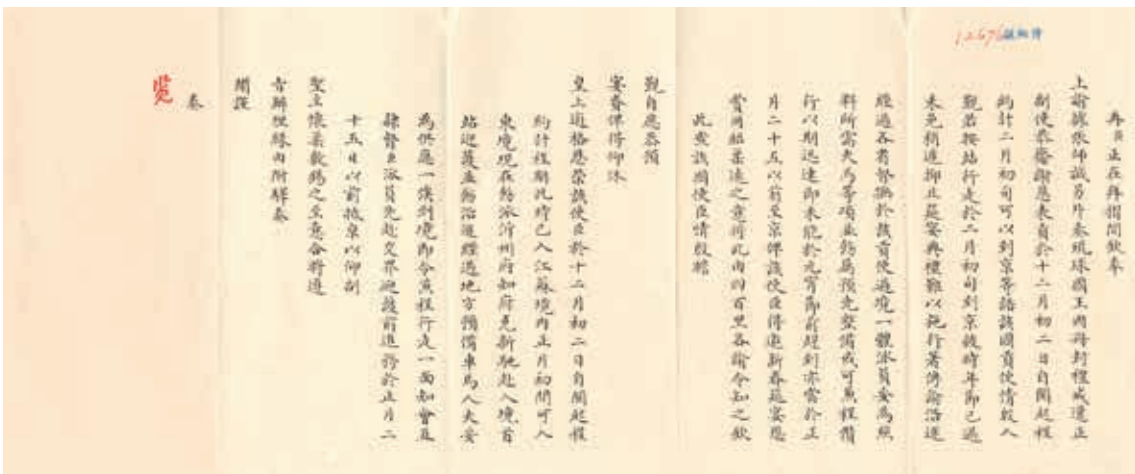 12676
再臣正在拜摺間欽奉
上諭據張師誠另片奏琉球國王因冊封禮成遣正
副使恭齎謝恩表貢於十二月初二日自閩起程
約計二月初旬可以到京等語該國貢使情殷入
覲若按站行走於二月初旬到京彼時年節已過
未免稍遲抑且筵宴典禮難以趕行著傳諭沿途
經過各省督撫於該貢使過境一體派員妥為照
料所需夫馬等項並飭屬預先整備或可兼程儹
行以期迅速即未能於元宵節前趕到亦當於正
月二十五以前至京俾該使臣得邀新春筵宴恩
賚用昭柔遠之意將此由四百里各諭令知之欽
此查該國使臣情殷瞻
覲自應亟預
宴賚俾得仰沐
皇上逾格恩榮該使臣於十二月初二日自閩起程
約計程期此時已入江蘇境內正月初間可入
東境現在飭派沂州府知府克新馳赴入境首
站迎護並飭沿途經過地方預備車馬人夫妥
為供應一俟到境即令兼程行走一面知會直
隸督臣派員先赴交界迎護前進務於正月二
十五日以前抵京以仰副
聖主懷柔敷錫之至意合將遵
旨辦理緣由附驛奏
聞謹
奏
覽